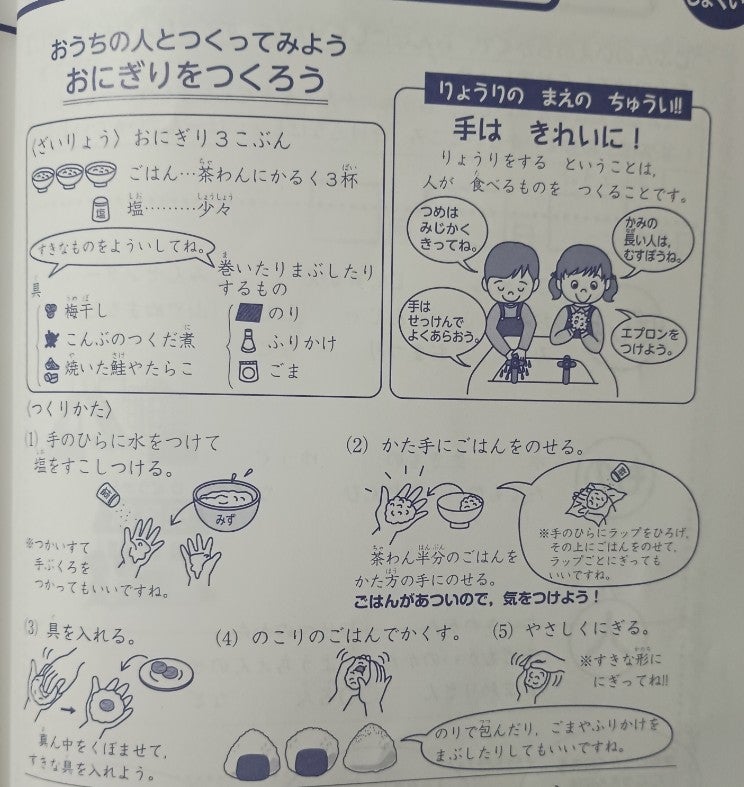 おうちの人とつくってみよう
おにぎりをつくろう
〈ざいりょう〉おにぎり3こぶん
ごはん…茶わんにかるく3杯
塩………少々
塩
すきなものをよういしてね。
具
梅干し
こんぶのつくだ煮
焼いた鮭やたらこ
巻いたりまぶしたり
するもの
のり
ふりかけ
ごま
りょうりの まえの ちゅうい!!
手は きれいに!
りょうりをする ということは,
人が 食べるものを つくることです。
つめは
みじかく
きってね。
かみの
長い人は,
むすぼうね。
手は
せっけんで
よくあらおう。
エプロンを
つけよう。
〈つくりかた〉
(1) 手のひらに水をつけて
塩をすこしつける。
みず
※つかいすて
手ぶくろを
つかってもいいですね。
(2) かた手にごはんをのせる。
茶わん半分のごはんを
かた方の手にのせる。
ごはんがあついので,気をつけよう!
※手のひらにラップをひろげ,
その上にごはんをのせて,
ラップごとにぎっても
いいですね。
(3) 具を入れる。
真ん中をくぼませて,
すきな具を入れよう。
(4) のこりのごはんでかくす。
(5) やさしくにぎる。
※すきな形に
にぎってね!!
のりで包んだり,ごまやふりかけを
まぶしたりしてもいいですね。